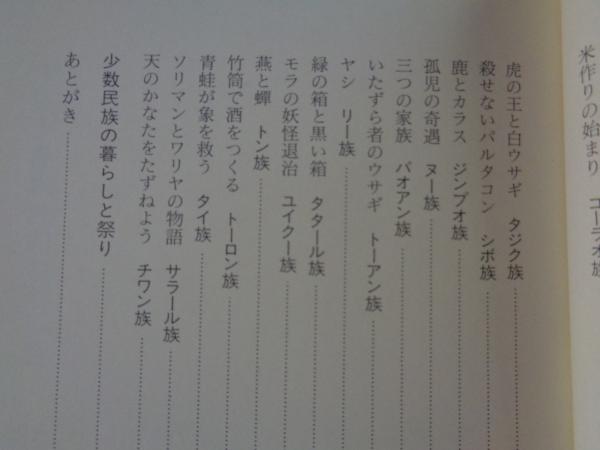 米作りの始まり コーラオ族
虎の王と白ウサギ タジク族
殺せないパルタコン シボ族
鹿とカラス ジンプオ族
孤児の奇遇 ヌー族
三つの家族 パオアン族
いたずら者のウサギ トーアン族
ヤシ リー族
緑の箱と黒い箱 タタール族
モラの妖怪退治 ユイクー族
燕と蟬 トン族
竹筒で酒をつくる トーロン族
青蛙が象を救う タイ族
ソリマンとワリヤの物語 サラール族
天のかなたをたずねよう チワン族
少数民族の暮らしと祭り
あとがき